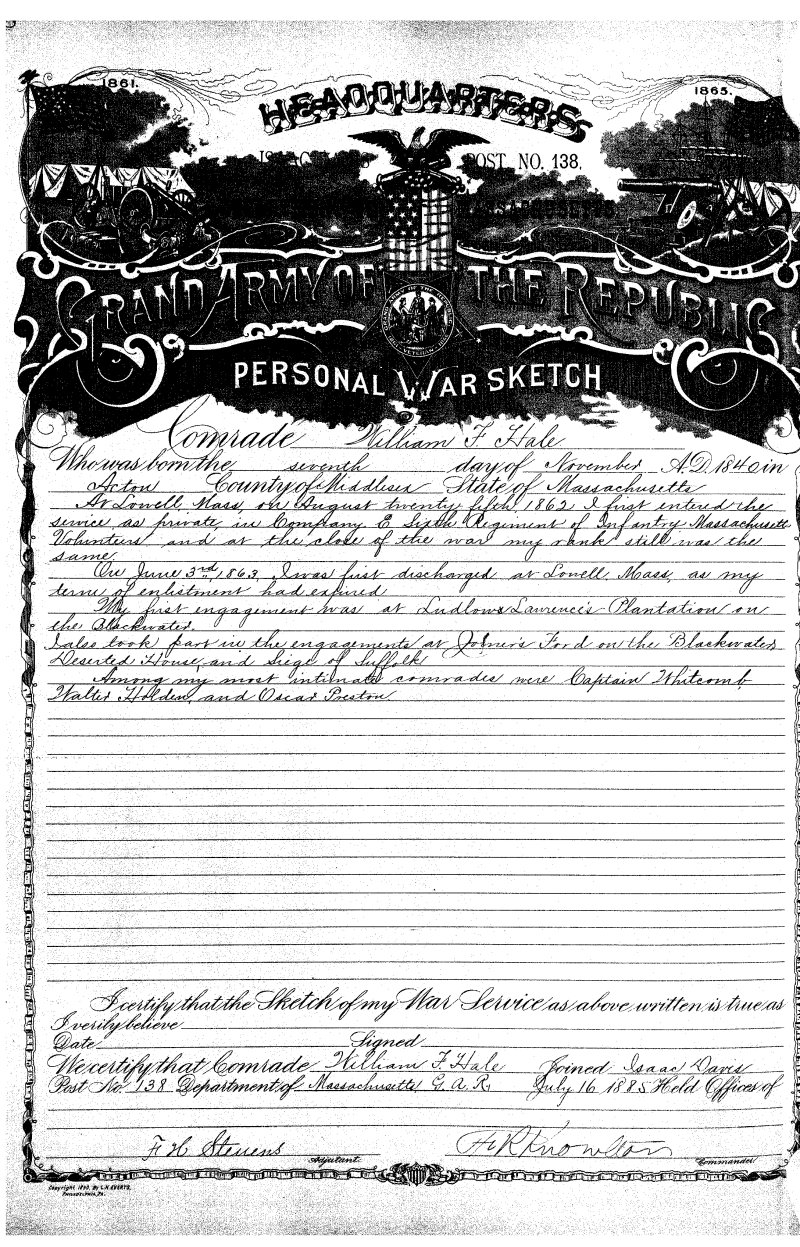 1861.
1865.
HEADQUARTERS
POST NO. 138,
MASSACHUSETTS.
GRAND ARMY OF THE REPUBLIC
PERSONAL WAR SKETCH
Comrade William F. Hale
Who was born the seventh day of November A.D. 1840 in
Acton County of Middlesex State of Massachusetts
At Lowell, Mass, on August twenty fifth, 1862, I first entered the
service as private in Company E Sixth Regiment of Infantry Massachusetts
Volunteers and at the close of the war my rank still was the
same.
On June 3rd, 1863, I was first discharged at Lowell, Mass, as my
term of enlistment had expired
My first engagement was at Ludlow & Lawrence's Plantation on
the Blackwater.
I also took part in the engagements at Joiner's Ford on the Blackwater
Deserted House, and Siege of Suffolk
Among my most intimate comrades were Captain Whitcomb,
Walter Holden, and Oscar Preston
I certify that the Sketch of my War Service as above written is true as
I verily believe
Date Signed
We certify that Comrade William F. Hale Joined Isaac Davis
Post No. 138 Department of Massachusetts G.A.R. July 16 1885 Held Offices of
F H Stevens
Adjutant.
F R Knowlton
Commander
Copyright 1890, By L.H. EVERTS,
PHILADELPHIA, PA.